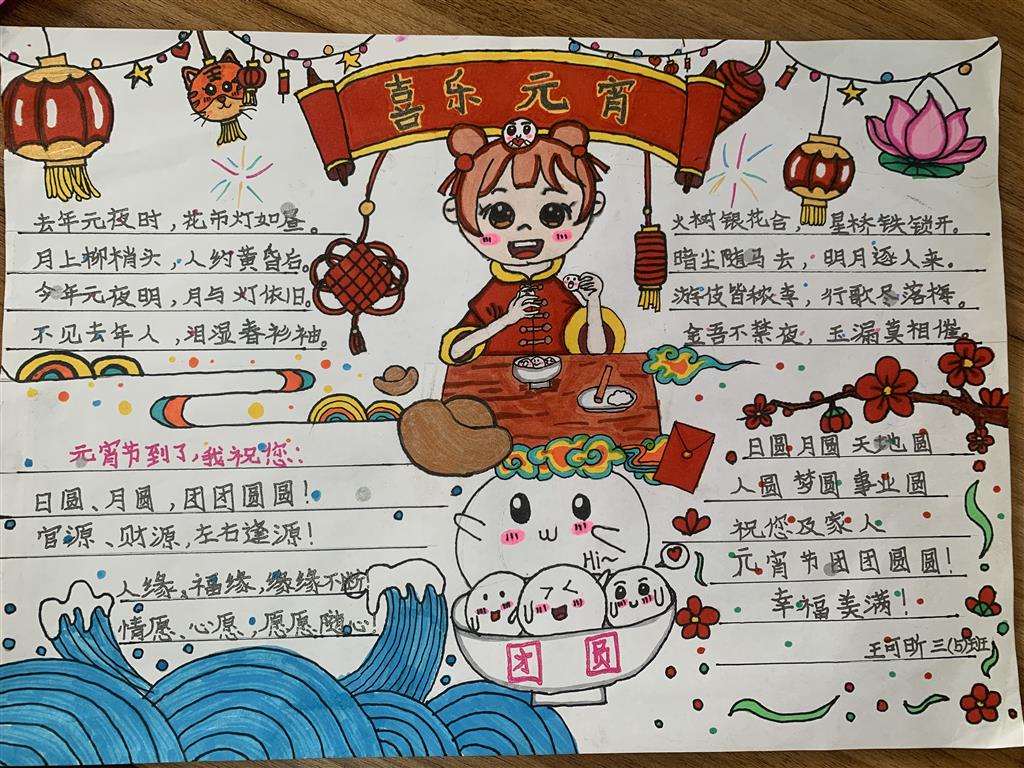 喜乐元宵
去年元夜时，花市灯如昼。
月上柳梢头，人约黄昏后。
今年元夜明，月与灯依旧。
不见去年人，泪湿春衫袖。
火树银花合，星桥铁锁开。
暗尘随马去，明月逐人来。
游伎皆秾李，行歌尽落梅。
金吾不禁夜，玉漏莫相催。
元宵节到了，我祝您：
日圆、月圆，团团圆圆！
官源、财源，左右逢源！
人缘、福缘，缘缘不断
情愿、心愿、愿愿随心！
日圆月圆天地圆
人圆梦圆事业圆
祝您及家人
元宵节团团圆圆！
幸福美满！
王可昕三(5)班
Hi~
团圆